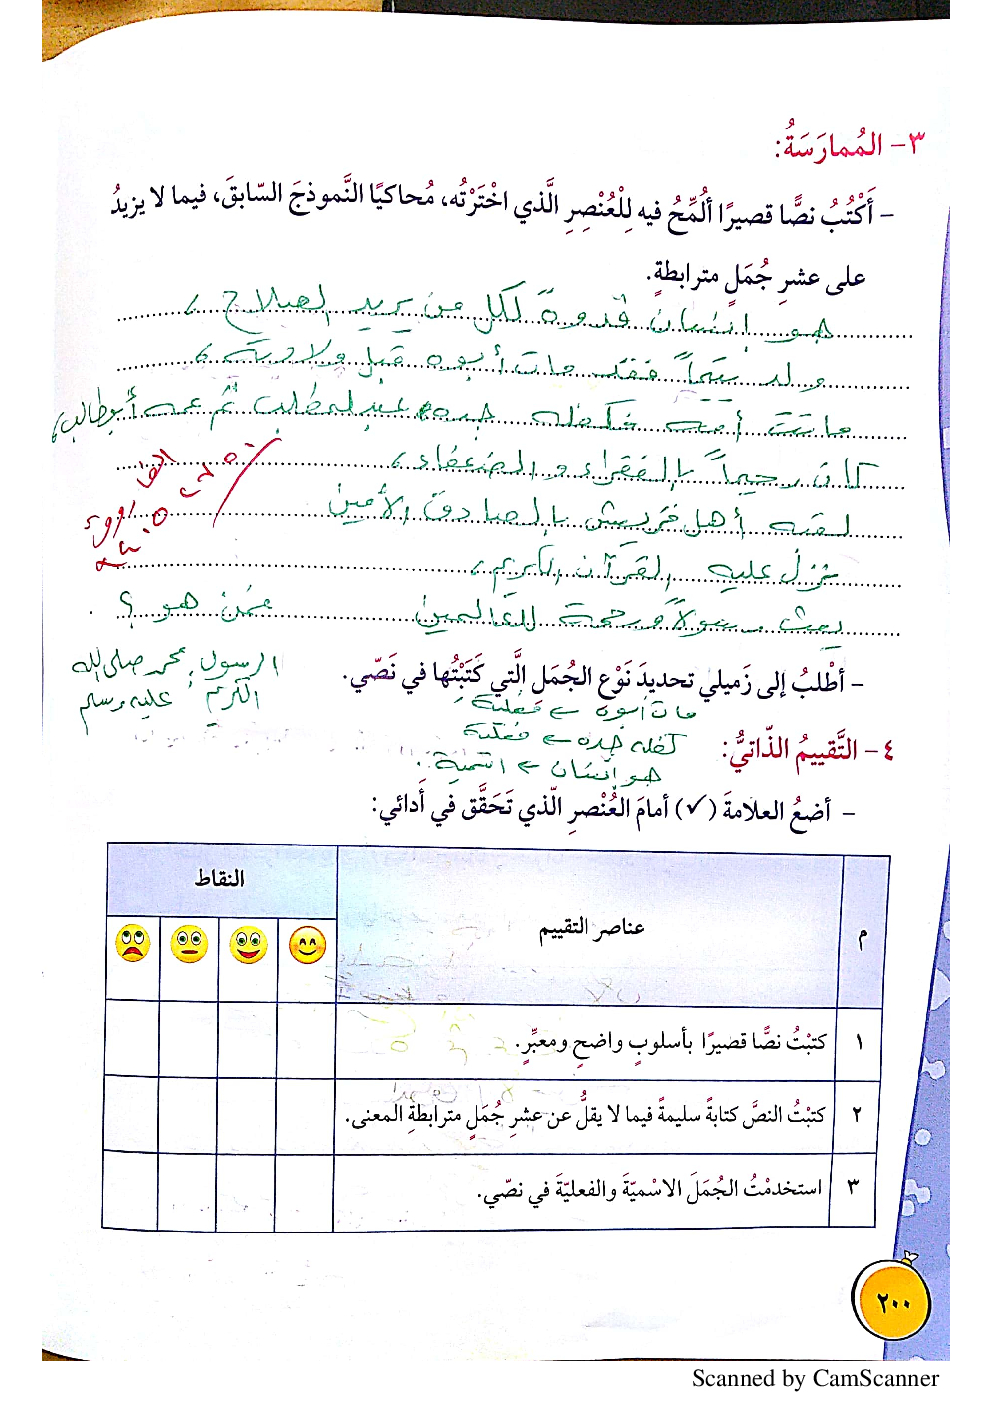 ٣- المُمارَسَةُ:
- أَكْتُبُ نصًّا قصيرًا أُلَمِّحُ فيه لِلْعُنْصِرِ الَّذي اخْتَرْتُه، مُحاكيًا النَّموذجَ السّابقَ، فيما لا يزيدُ
على عشرِ جُمَلٍ مترابطةٍ.
هو إنسان قدوةً لكل من يريد الصلاح،
ولد يتيماً فقد مات أبوه قبل ولادته،
ماتت أمه فكفله جده عبدلمطلب ثم عمه أبوطالب،
كان رحيماً بالفقراء والضعفاء،
لقبه أهل قريش بالصادق الأمين
نزل عليه القرآن الكريم،
بعث رسولاً ورحمة للعالمين فمن هو؟
الرسول: محمد صلى الله
الكريم عليه وسلم
- أطْلبُ إلى زَميلي تحديدَ نَوْعِ الجُمَلِ الَّتي كَتَبْتُها في نَصّي.
مات أبوه ← فعلية
كفله جده ← فعلية
٤- التَّقييمُ الذّاتيُّ:
هو إنسان ← اسمية
- أضعُ العلامةَ (✓) أمامَ العُنْصرِ الّذي تَحَقَّق في أَدائي:
م
عناصر التقييم
النقاط
١ كتبْتُ نصًّا قصيرًا بأسلوبٍ واضحٍ ومعبِّرٍ.
٢ كتبْتُ النصَّ كتابةً سليمةً فيما لا يقلُّ عن عشرِ جُمَلٍ مترابطةِ المعنى.
٣ استخدمْتُ الجُمَلَ الاسْميّةَ والفعليّةَ في نصّي.
٢٠٠
Scanned by CamScanner